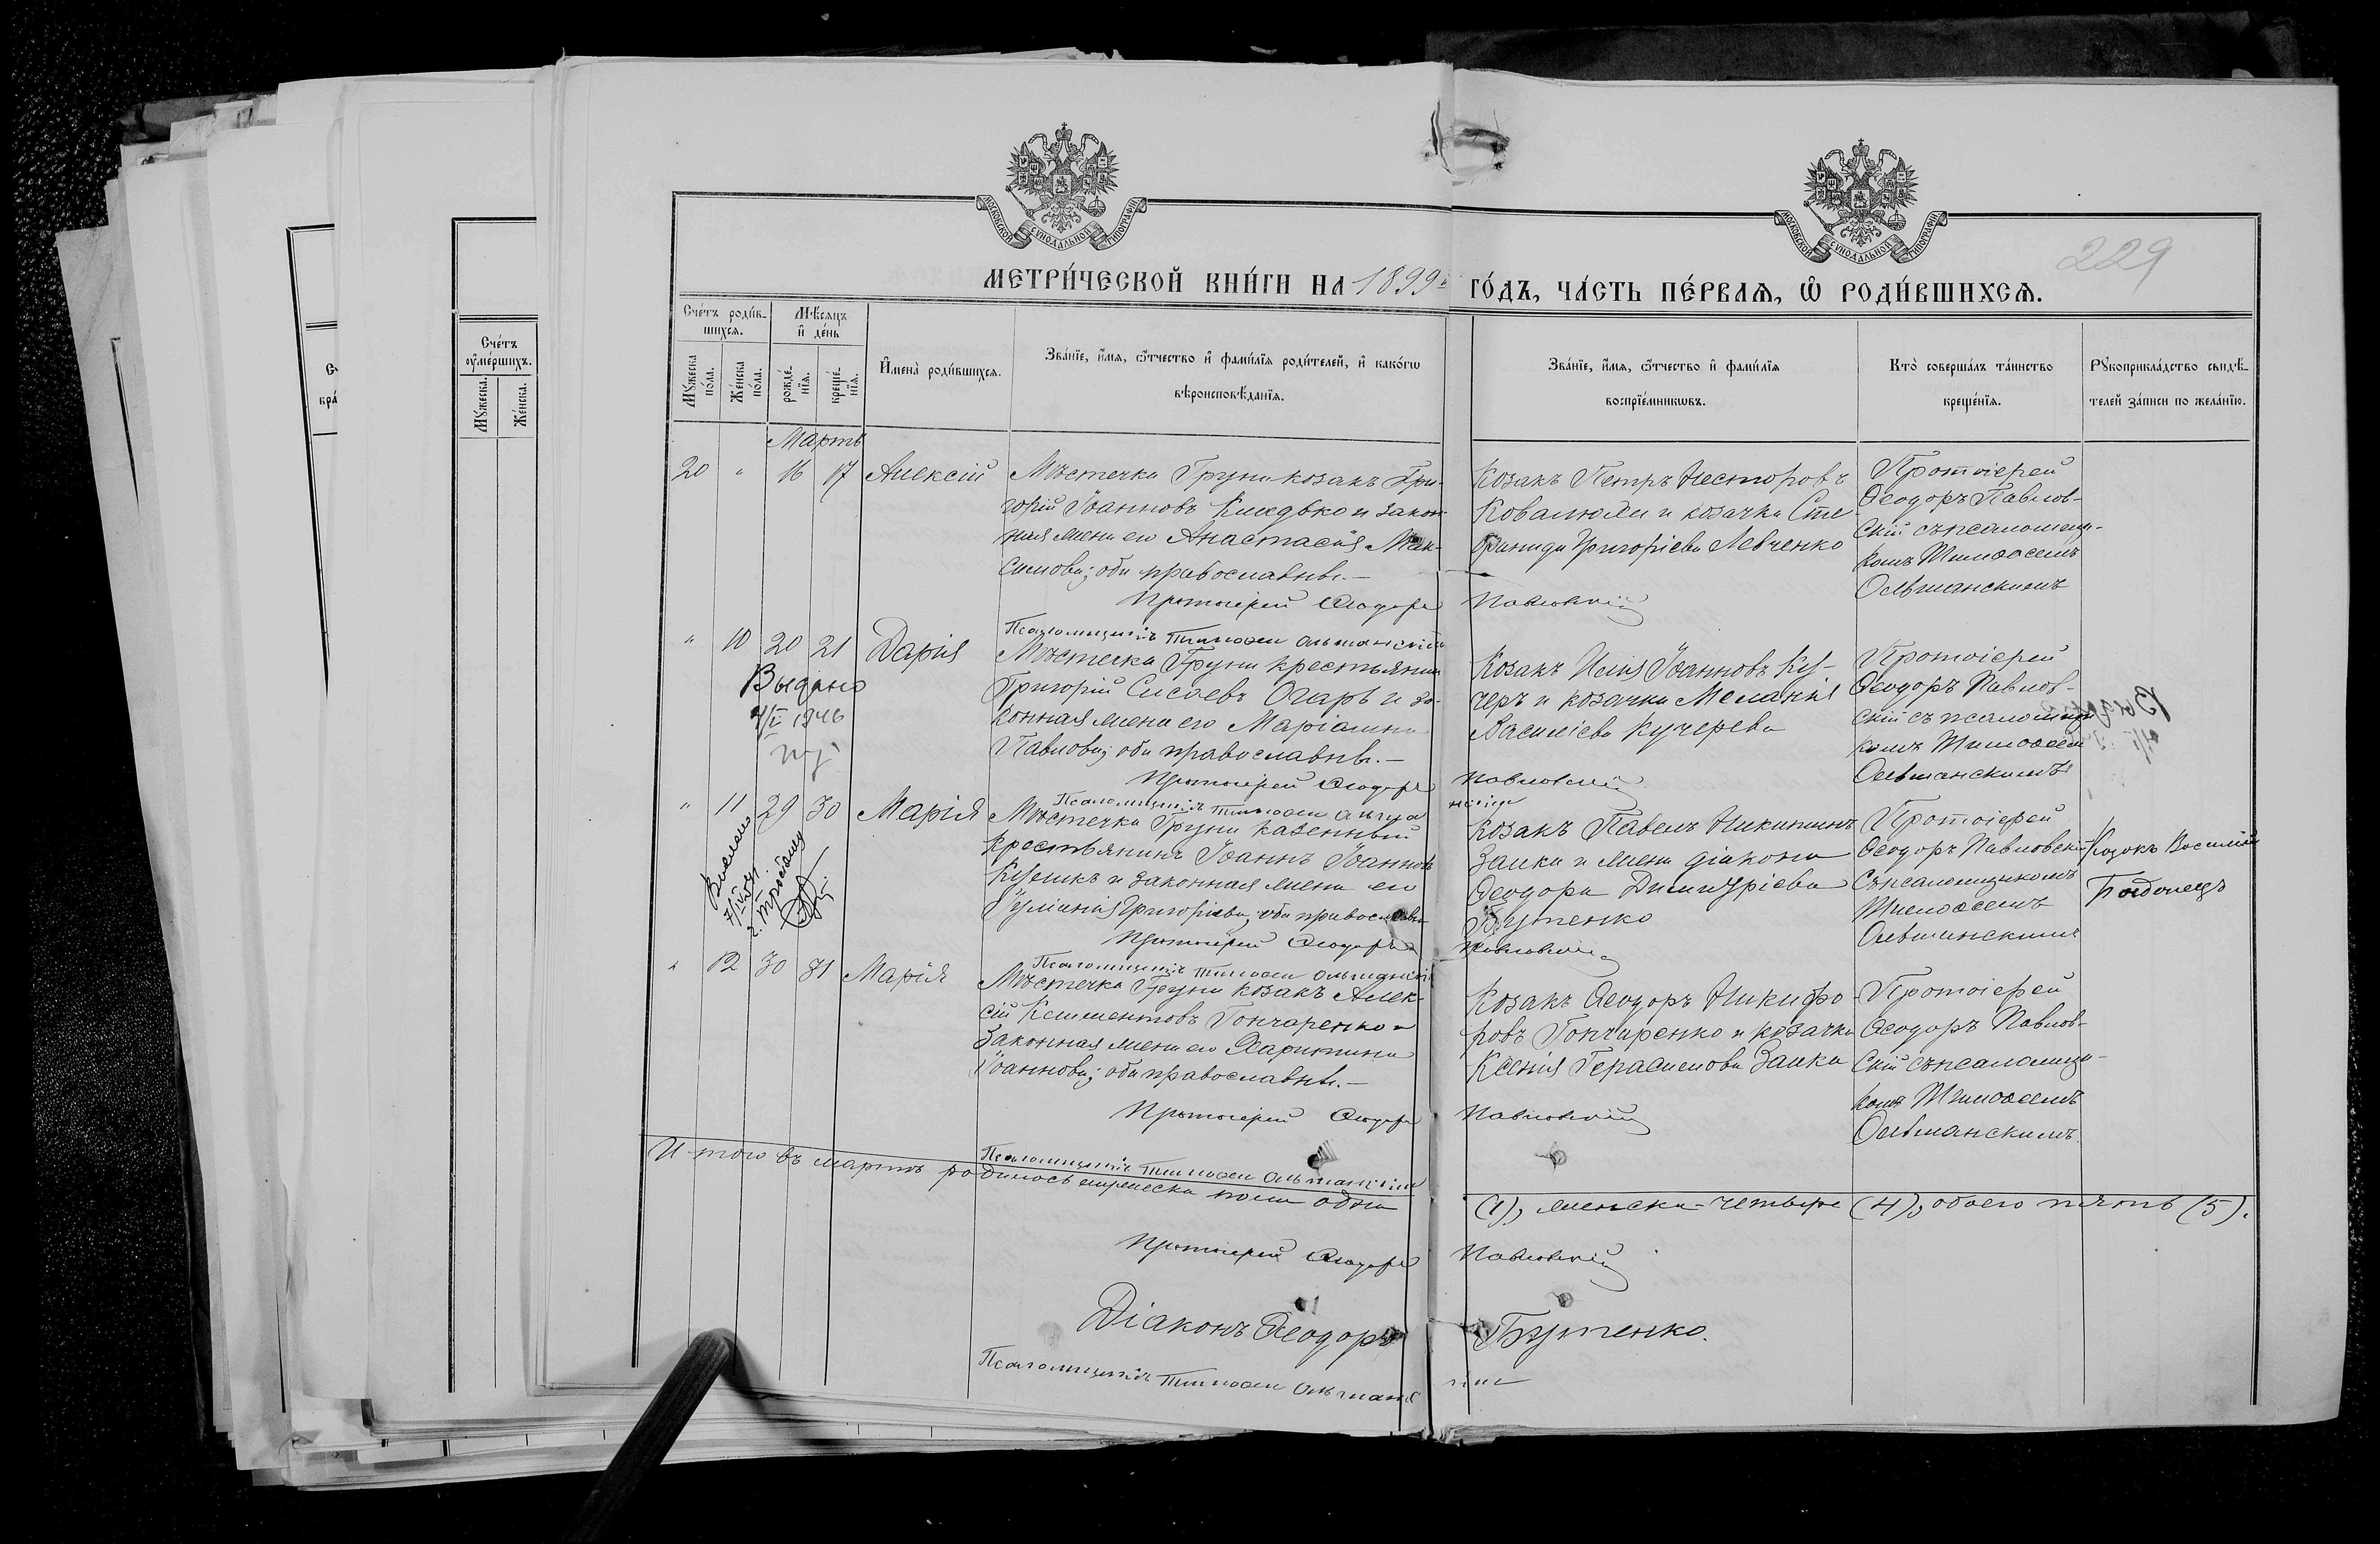 МОСКОВСКОЙ СѴНОДАЛЬНОЙ ТИПОГРАФІИ
МОСКОВСКОЙ СѴНОДАЛЬНОЙ ТИПОГРАФІИ
229
МЕТРИ́ЧЕСКОЙ КНИ́ГИ НА 1899й ГО́ДЪ, ЧА́СТЬ ПЕ́РВАѦ, Ѡ҆ РОДИ́ВШИХСѦ.
Сче́тъ роди́в-
шихсѧ.
Мꙋ́жеска по́ла.
Же́нска по́ла.
Мѣ́сѧцъ и҆ де́нь
рожде́нїѧ.
креще́нїѧ.
И҆мена̀ роди́вшихсѧ.
Зва́нїе, и҆́мѧ, ѻ҆́тчество и҆ фами́лїѧ роди́телей, и҆ како́гѡ
вѣроисповѣ́данїѧ.
Зва́нїе, и҆́мѧ, ѻ҆́тчество и҆ фами́лїѧ
воспрїе́мникѡвъ.
Кто̀ соверша́лъ та́инство
креще́нїѧ.
Рꙋкоприкла́дство свидѣ́-
телей за́писи по жела́нїю.
Сче́тъ
ᲂу҆ме́ршихъ.
Мꙋ́жеска.
Же́нска.
Мартъ
20 " 16 17 Алексій
Мѣстечка Груни козакъ Гри-
горій Іоанновъ и закон-
ная жена его Анастасія Мак-
симова; оба православные.—
Протоіерей Ѳеодоръ Павловскій
Псаломщикъ Тимоѳей Ольшанскій
Козакъ Петръ Несторовъ
и козачка Сте-
фанида Григоріева Левченко
Протоіерей
Ѳеодоръ Павлов-
скій съ псаломщи-
комъ Тимоѳеемъ
Ольшанскимъ
" 10 20 21 Дарія
Выдано
1946
Мѣстечка Груни крестьянинъ
Григорій Сисоевъ Огарь и за-
конная жена его Маріамна
Павлова; оба православные.—
Протоіерей Ѳеодоръ Павловскій
Псаломщикъ Тимоѳей Ольшанскій
Козакъ Илія Іоанновъ Ку-
черъ и козачка Меланія
Василіева Кучерева
Протоіерей
Ѳеодоръ Павлов-
скій съ псаломщи-
комъ Тимоѳеемъ
Ольшанскимъ
" 11 29 30 Марія
Мѣстечка Груни казенный
крестьянинъ Іоаннъ Іоанновъ
и законная жена его
Іуліанія Григоріева; оба православные
Протоіерей Ѳеодоръ Павловскій
Псаломщикъ Тимоѳей Ольшанскій
Козакъ Павелъ Никитинъ
Заика и жена діакона
Ѳеодора Димитріева
Бутенко
Протоіерей
Ѳеодоръ Павловскій
съ псаломщикомъ
Тимоѳеемъ
Ольшанскимъ
Козакъ Василій
" 12 30 31 Марія
Мѣстечка Груни козакъ Алек-
сій Климентовъ Гончаренко и
законная жена его Харитина
Іоаннова; оба православные.—
Протоіерей Ѳеодоръ Павловскій
Псаломщикъ Тимоѳей Ольшанскій
Козакъ Ѳеодоръ Никифо-
ровъ Гончаренко и козачка
Ксенія Герасимова Заика
Протоіерей
Ѳеодоръ Павлов-
скій съ псаломщи-
комъ Тимоѳеемъ
Ольшанскимъ.
И того въ мартѣ родилось мужеска пола одна (1), женска – четыре (4), обоего пять (5).
Протоіерей Ѳеодоръ Павловскій
Діаконъ Ѳеодоръ Бутенко.
Псаломщикъ Тимоѳей Ольшанскій